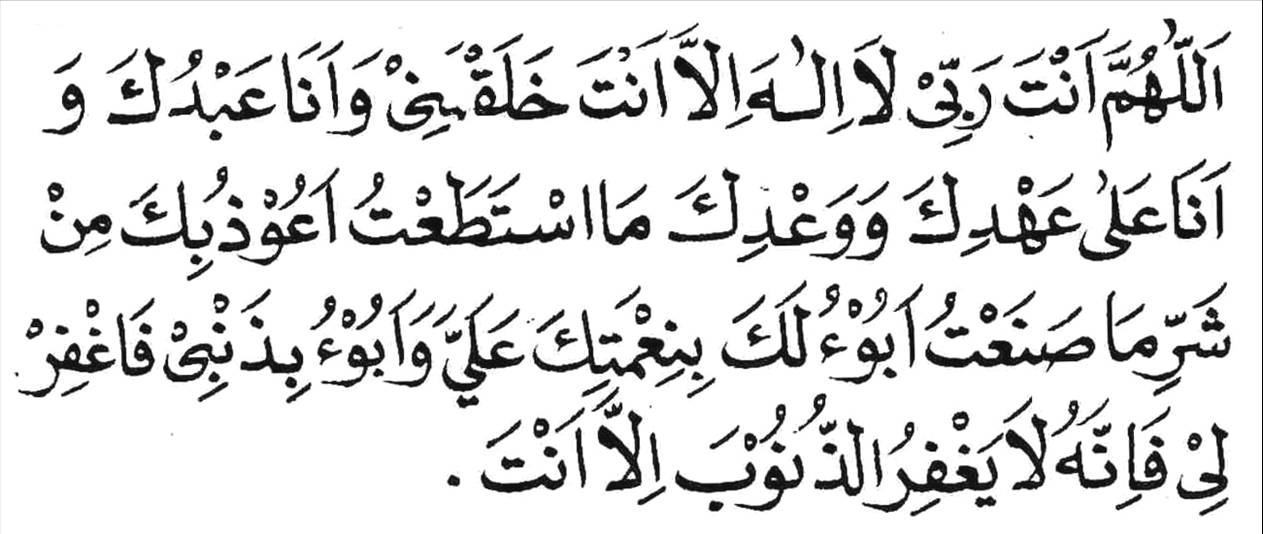 اَللّٰهُمَّ اَنْتَ رَبِّيْ لَا اِلٰهَ اِلَّا اَنْتَ خَلَقْتَنِيْ وَاَنَا عَبْدُكَ وَ
اَنَا عَلٰى عَهْدِكَ وَوَعْدِكَ مَا اسْتَطَعْتُ اَعُوْذُبِكَ مِنْ
شَرِّ مَا صَنَعْتُ اَبُوْءُ لَكَ بِنِعْمَتِكَ عَلَيَّ وَاَبُوْءُ بِذَنْبِيْ فَاغْفِرْ
لِيْ فَاِنَّهُ لَا يَغْفِرُ الذُّنُوْبَ اِلَّا اَنْتَ .